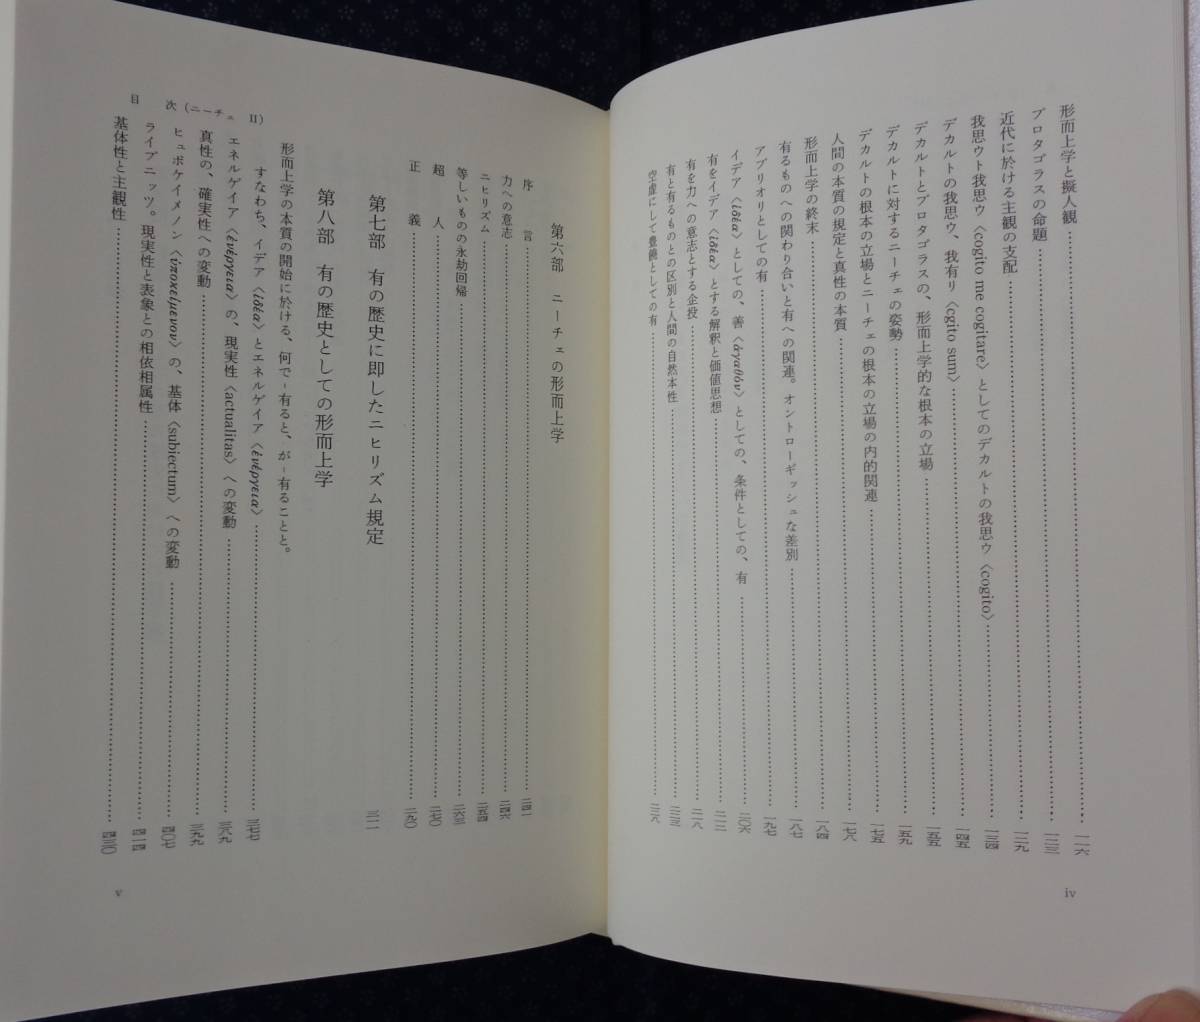 形而上学と擬人観 一一六
プロタゴラスの命題 一二三
近代に於ける主観の支配 一二九
我思ウト我思ウ〈cogito me cogitare〉としてのデカルトの我思ウ〈cogito〉 一三四
デカルトの我思ウ、我有リ〈cgito sum〉 一四五
デカルトとプロタゴラスの、形而上学的な根本の立場 一五五
デカルトに対するニーチェの姿勢 一五九
デカルトの根本の立場とニーチェの根本の立場の内的関連 一七五
人間の本質の規定と真性の本質 一七八
形而上学の終末 一八四
有るものへの関わり合いと有への関連。オントローギッシュな差別 一八七
アプリオリとしての有 一九七
イデア〈ἰδέα〉としての、善〈ἀγαθόν〉としての、条件としての、有 二〇六
有をイデア〈ἰδέα〉とする解釈と価値思想 二一二
有を力への意志とする企投 二一八
有と有るものとの区別と人間の自然本性 二三三
空虚にして豊饒としての有 二三八
iv
第六部 ニーチェの形而上学
序言 二四一
力への意志 二四六
ニヒリズム 二五四
等しいものの永劫回帰 二六三
超人 二七〇
正義 二九〇
第七部 有の歴史に即したニヒリズム規定 三一一
第八部 有の歴史としての形而上学
形而上学の本質の開始に於ける、何で-有ると、が-有ることと。
すなわち、イデア〈ἰδέα〉とエネルゲイア〈ἐνέργεια〉 三七七
エネルゲイア〈ἐνέργεια〉の、現実性〈actualitas〉への変動 三八九
真性の、確実性への変動 三九九
ヒュポケイメノン〈ὑποκείμενον〉の、基体〈subiectum〉への変動 四〇七
ライプニッツ。現実性と表象との相依相属性 四一四
基体性と主観性 四三〇
目 次(ニーチェ II)
v